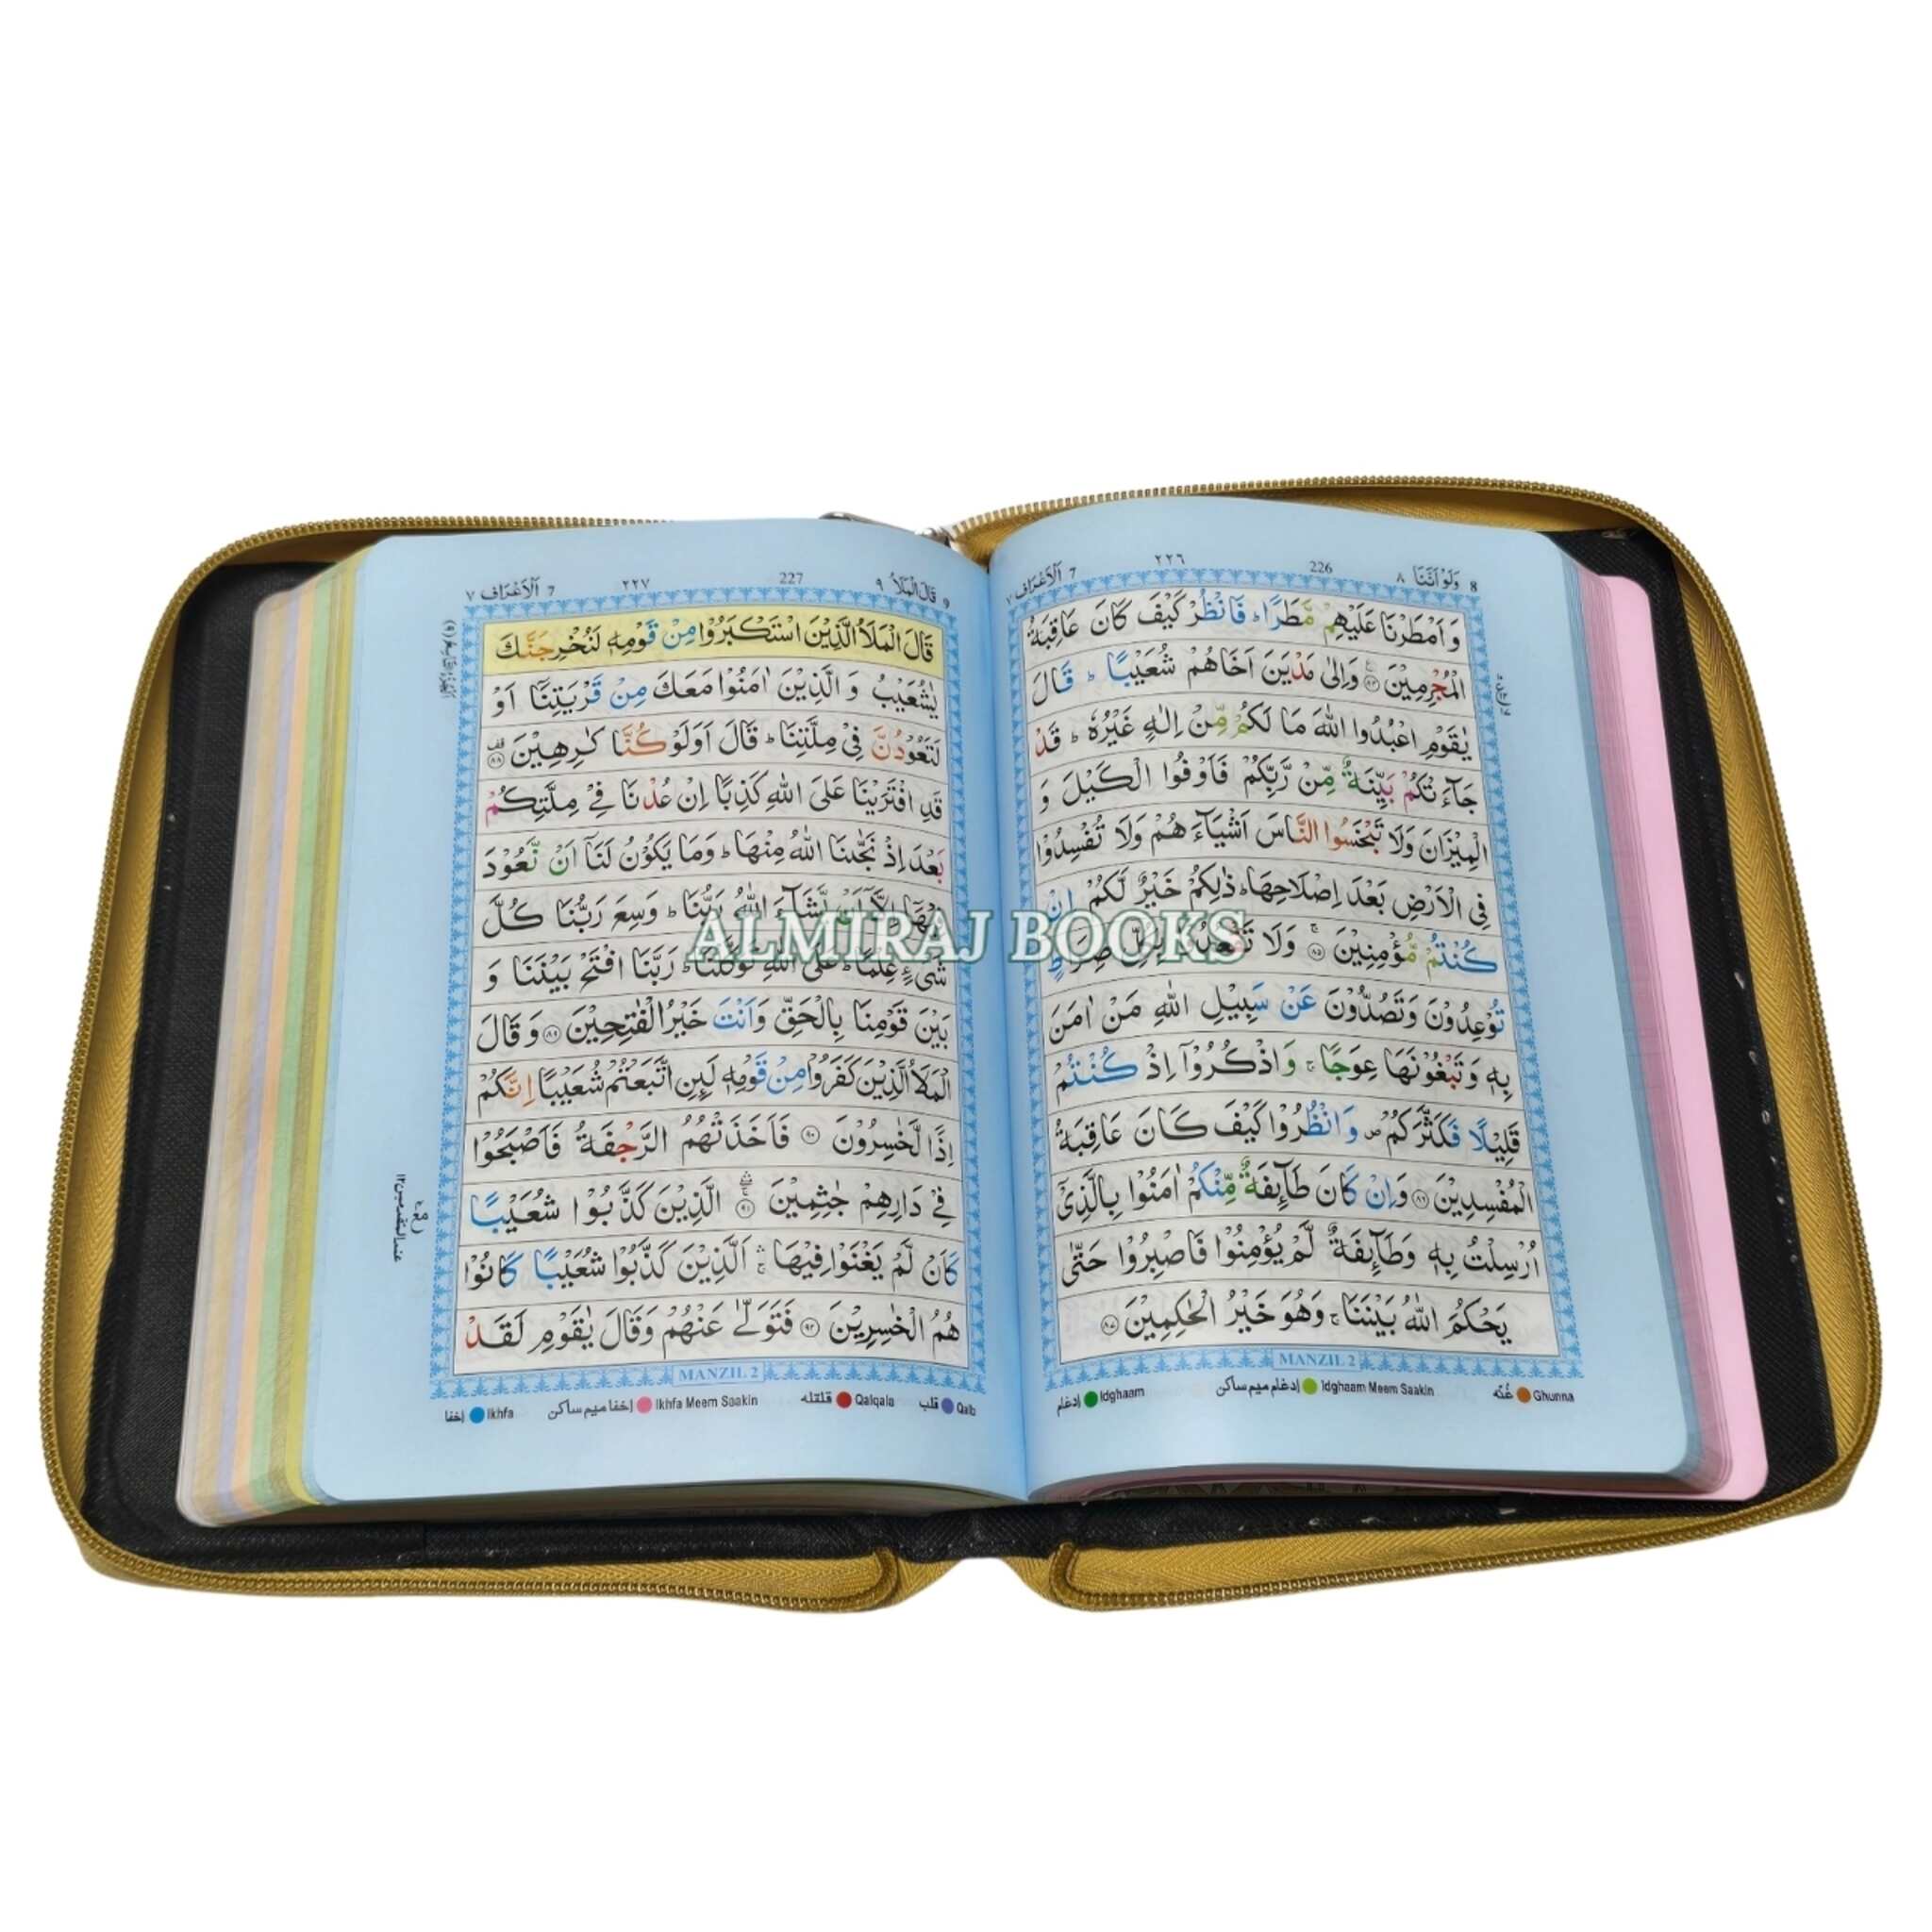 ٨ وَلَوْ اَنَّنَا 8
226
٢٢٦
7 اَلْاَعْرَاف ٧
وَ اَمْطَرْنَا عَلَيْهِمْ مَّطَرًا ؕ فَانْظُرْ كَيْفَ كَانَ عَاقِبَةُ
الْمُجْرِمِيْنَ ﴿٨٤﴾ وَاِلٰى مَدْيَنَ اَخَاهُمْ شُعَيْبًا ؕ قَالَ
يٰقَوْمِ اعْبُدُوا اللّٰهَ مَا لَكُمْ مِّنْ اِلٰهٍ غَيْرُهٗ ؕ قَدْ
جَآءَتْكُمْ بَيِّنَةٌ مِّنْ رَّبِّكُمْ فَاَوْفُوا الْكَيْلَ وَ
الْمِيْزَانَ وَلَا تَبْخَسُوا النَّاسَ اَشْيَآءَهُمْ وَلَا تُفْسِدُوْا
فِى الْاَرْضِ بَعْدَ اِصْلَاحِهَا ؕ ذٰلِكُمْ خَيْرٌ لَّكُمْ اِنْ
كُنْتُمْ مُّؤْمِنِيْنَ ﴿٨٥﴾ وَلَا تَقْعُدُوْا بِكُلِّ صِرَاطٍ
تُوْعِدُوْنَ وَتَصُدُّوْنَ عَنْ سَبِيْلِ اللّٰهِ مَنْ اٰمَنَ
بِهٖ وَتَبْغُوْنَهَا عِوَجًا ۚ وَاذْكُرُوْٓا اِذْ كُنْتُمْ
قَلِيْلًا فَكَثَّرَكُمْ ۪ وَانْظُرُوْا كَيْفَ كَانَ عَاقِبَةُ
الْمُفْسِدِيْنَ ﴿٨٦﴾ وَاِنْ كَانَ طَآئِفَةٌ مِّنْكُمْ اٰمَنُوْا بِالَّذِيْٓ
اُرْسِلْتُ بِهٖ وَطَآئِفَةٌ لَّمْ يُؤْمِنُوْا فَاصْبِرُوْا حَتّٰى
يَحْكُمَ اللّٰهُ بَيْنَنَا ۚ وَهُوَ خَيْرُ الْحٰكِمِيْنَ ﴿٨٧﴾
MANZIL 2
Ghunna غُنّه
Idghaam Meem Saakin ادغام ميم ساكن
Idghaam ادغام
9 قَالَ الْمَلَاُ ٩
227
٢٢٧
7 اَلْاَعْرَاف ٧
قَالَ الْمَلَاُ الَّذِيْنَ اسْتَكْبَرُوْا مِنْ قَوْمِهٖ لَنُخْرِجَنَّكَ
يٰشُعَيْبُ وَ الَّذِيْنَ اٰمَنُوْا مَعَكَ مِنْ قَرْيَتِنَآ اَوْ
لَتَعُوْدُنَّ فِيْ مِلَّتِنَا ؕ قَالَ اَوَلَوْ كُنَّا كٰرِهِيْنَ ﴿٨٨﴾
قَدِ افْتَرَيْنَا عَلَى اللّٰهِ كَذِبًا اِنْ عُدْنَا فِيْ مِلَّتِكُمْ
بَعْدَ اِذْ نَجّٰىنَا اللّٰهُ مِنْهَا ؕ وَمَا يَكُوْنُ لَنَآ اَنْ نَّعُوْدَ
فِيْهَآ اِلَّآ اَنْ يَّشَآءَ اللّٰهُ رَبُّنَا ؕ وَسِعَ رَبُّنَا كُلَّ
شَىْءٍ عِلْمًا ؕ عَلَى اللّٰهِ تَوَكَّلْنَا ؕ رَبَّنَا افْتَحْ بَيْنَنَا وَ
بَيْنَ قَوْمِنَا بِالْحَقِّ وَاَنْتَ خَيْرُ الْفٰتِحِيْنَ ﴿٨٩﴾ وَقَالَ
الْمَلَاُ الَّذِيْنَ كَفَرُوْا مِنْ قَوْمِهٖ لَئِنِ اتَّبَعْتُمْ شُعَيْبًا اِنَّكُمْ
اِذًا لَّخٰسِرُوْنَ ﴿٩٠﴾ فَاَخَذَتْهُمُ الرَّجْفَةُ فَاَصْبَحُوْا
فِيْ دَارِهِمْ جٰثِمِيْنَ ﴿٩١﴾ الَّذِيْنَ كَذَّبُوْا شُعَيْبًا
كَاَنْ لَّمْ يَغْنَوْا فِيْهَا ۚ اَلَّذِيْنَ كَذَّبُوْا شُعَيْبًا كَانُوْا
هُمُ الْخٰسِرِيْنَ ﴿٩٢﴾ فَتَوَلّٰى عَنْهُمْ وَقَالَ يٰقَوْمِ لَقَدْ
MANZIL 2
Qalb قلب
Qalqala قلقله
Ikhfa Meem Saakin اخفا ميم ساكن
Ikhfa اخفا
ALMIRAJ BOOKS